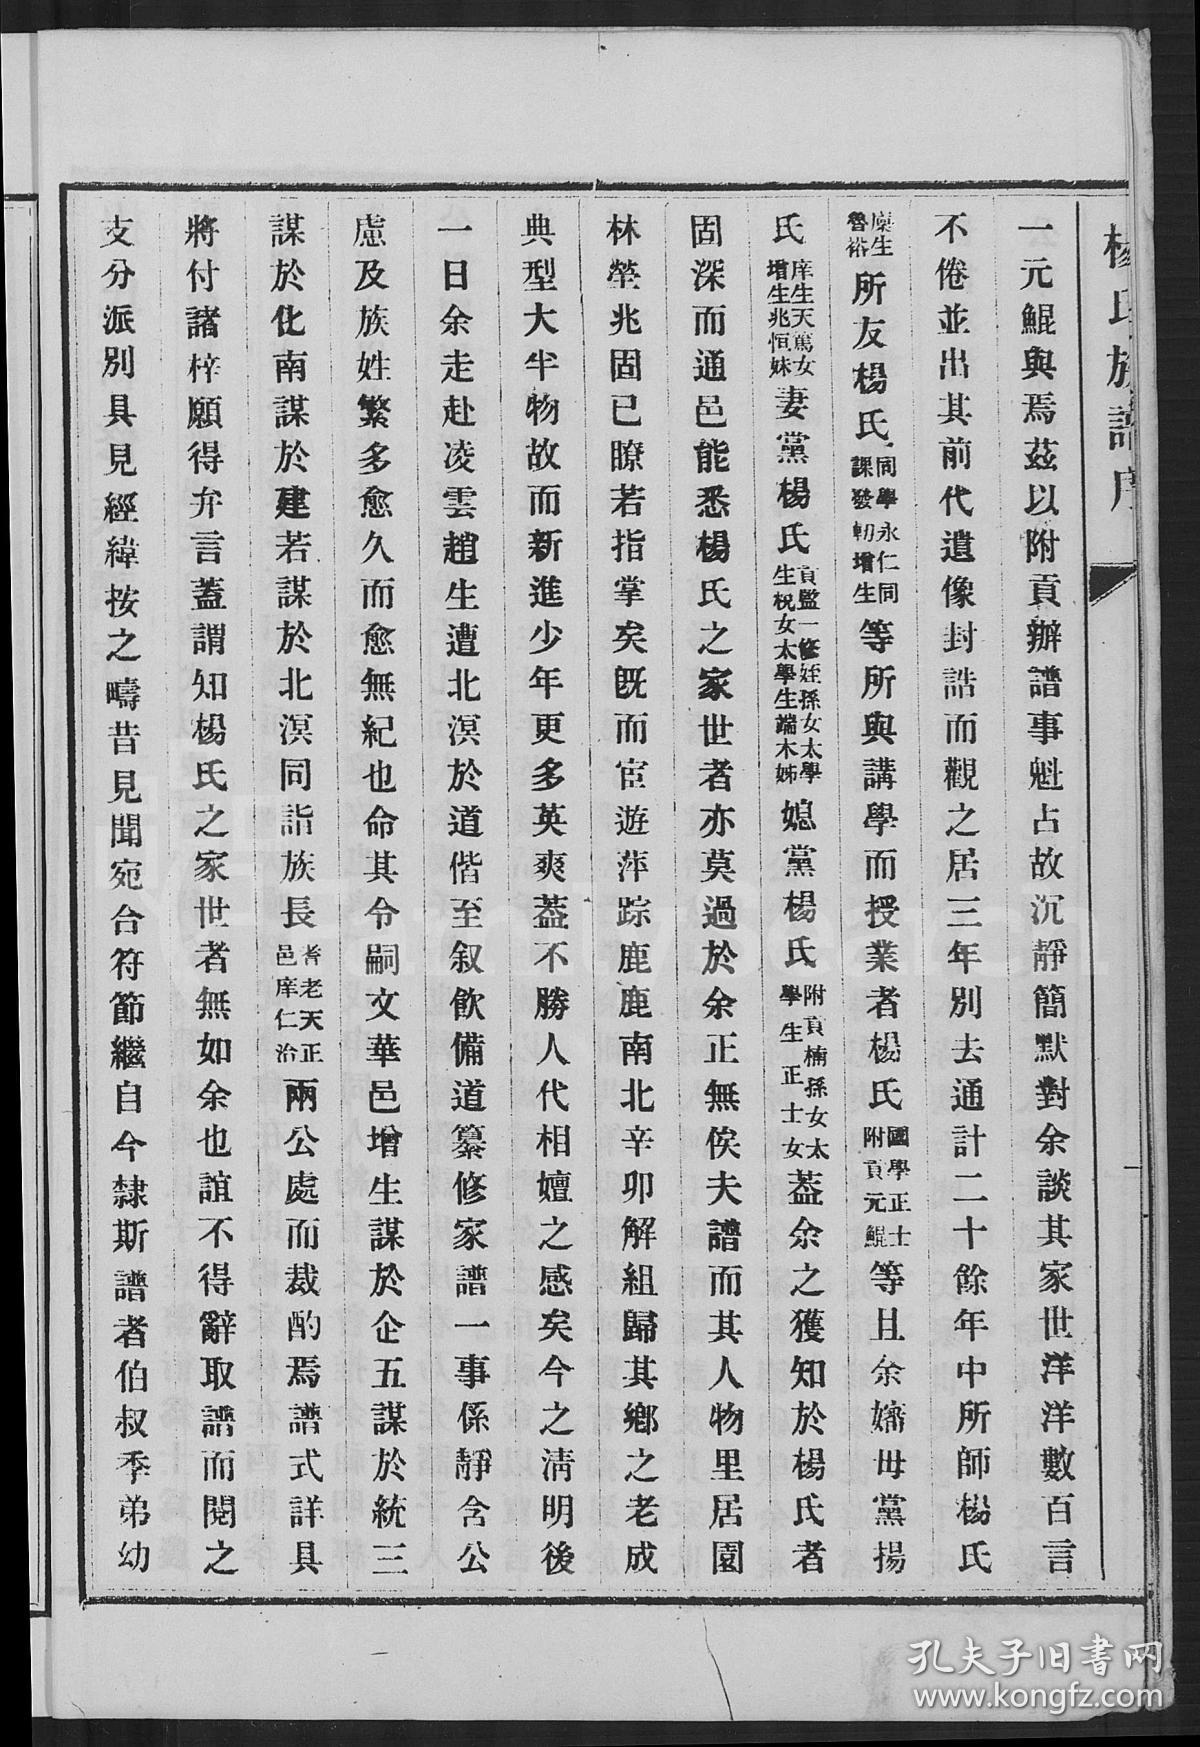 楊氏族譜序
一
一元鯤與焉茲以附貢辦譜事魁占故沉靜簡默對余談其家世洋洋數百言
不倦並出其前代遺像封誥而觀之居三年別去通計二十餘年中所師楊氏
廩生魯裕所友楊氏同學永仁同課發軔增生等所與講學而授業者楊氏國學正士附貢元鯤等且余嫡毋黨揚
氏庠生天篤女增生兆恒妹妻黨楊氏貢監一修姪孫女太學生棁女太學生端木姊媳黨楊氏附貢楠孫女太學生正士女葢余之獲知於楊氏者
固深而通邑能悉楊氏之家世者亦莫過於余正無俟夫譜而其人物里居園
林塋兆固已瞭若指掌矣旣而宦遊萍踪鹿鹿南北辛卯解組歸其鄉之老成
典型大半物故而新進少年更多英爽葢不勝人代相嬗之感矣今之淸明後
一日余走赴凌雲趙生遭北溟於道偕至叙飲備道纂修家譜一事係靜含公
慮及族姓繁多愈久而愈無紀也命其令嗣文華邑增生謀於企五謀於統三
謀於化南謀於建若謀於北溟同詣族長耆老天正邑庠仁治兩公處而裁酌焉譜式詳具
將付諸梓願得弁言蓋謂知楊氏之家世者無如余也誼不得辭取譜而閱之
支分派別具見經緯按之疇昔見聞宛合符節繼自今隸斯譜者伯叔季弟幼
孔夫子旧书网
www.kongfz.com